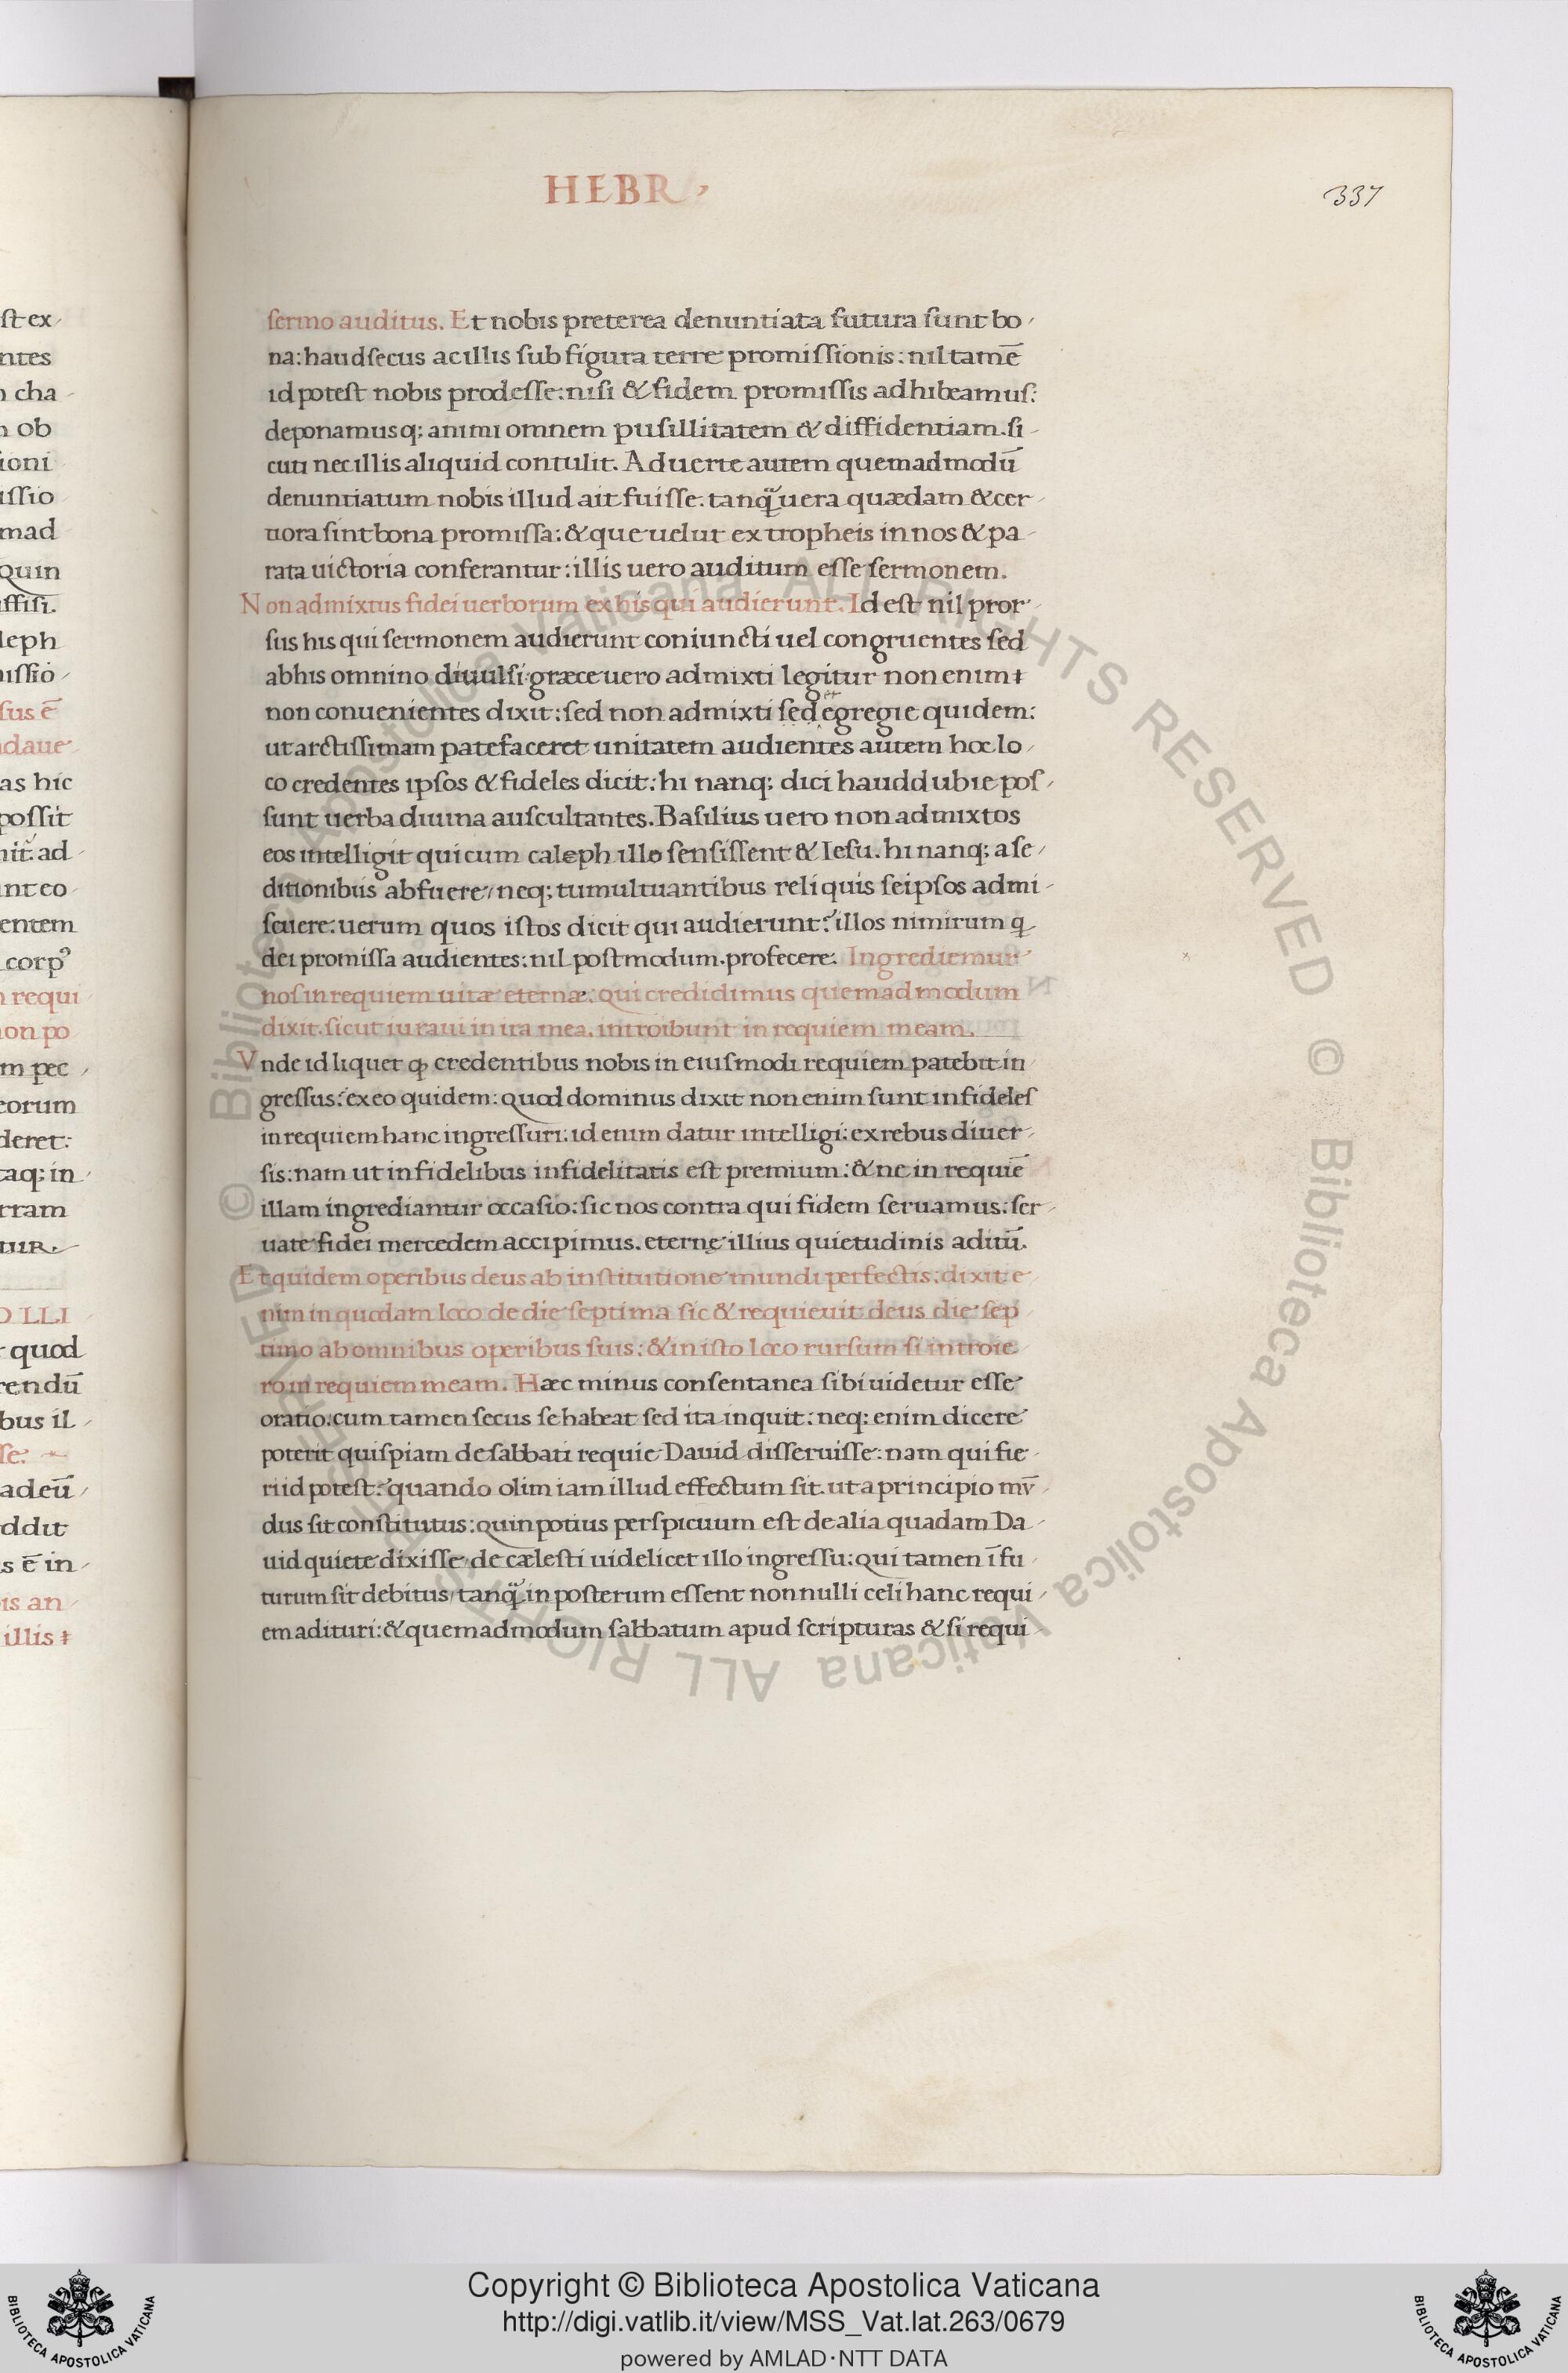 HEBR
337
sermo auditus. Et nobis preterea denuntiata futura sunt bo
na: haud secus ac illis sub figura terre promissionis: nil tamē
id potest nobis prodesse: nisi & fidem promissis adhibeamus:
deponamusq; animi omnem pusillitatem & diffidentiam. si
cuti nec illis aliquid contulit. Aduerte autem quemadmodū
denuntiatum nobis illud ait fuisse. tanq̃ uera quædam & cer
tiora sint bona promissa: & que uelut ex tropheis in nos & pa
rata uictoria conferantur: illis uero auditum esse sermonem.
Non admixtus fidei uerborum ex his qui audierunt. Id est nil pror
sus his qui sermonem audierunt coniuncti uel congruentes sed
ab his omnino diuulsi græce uero admixti legitur non enim
non conuenientes dixit: sed non admixti sed egregie quidem:
ut arctissimam patefaceret unitatem audientes autem hoc lo
co credentes ipsos & fideles dicit: hi nanq; dici haud dubie pos
sunt uerba diuina auscultantes. Basilius uero non admixtos
eos intelligit qui cum caleph illo sensissent & Iesu. hi nanq; a se
ditionibus abfuere/ neq; tumultuantibus reliquis seipsos admi
scuere: uerum quos istos dicit qui audierunt? illos nimirum q
dei promissa audientes: nil postmodum profecere. Ingrediemur
nos in requiem uitæ eternæ. qui credidimus quemadmodum
dixit. sicut iuraui in ira mea. introibunt in requiem meam.
Vnde id liquet ꝙ credentibus nobis in eiusmodi requiem patebit in
gressus? ex eo quidem: quod dominus dixit non enim sunt infideles
in requiem hanc ingressuri: id enim datur intelligi: ex rebus diuer
sis: nam ut infidelibus infidelitatis est premium: & ne in requiē
illam ingrediantur occasio: sic nos contra qui fidem seruamus: ser
uate fidei mercedem accipimus. eternę illius quietudinis aditū.
Et quidem operibus deus ab institutione mundi perfectis: dixit e
nim in quodam loco de die septima sic & requieuit deus die sep
timo ab omnibus operibus suis: & in isto loco rursum si introie
ro in requiem meam. Hæc minus consentanea sibi uidetur esse
oratio. cum tamen secus se habeat sed ita inquit: neq; enim dicere
poterit quispiam de sabbati requie Dauid disseruisse: nam qui fie
ri id potest? quando olim iam illud effectum sit. ut a principio mv̄
dus sit constitutus: quin potius perspicuum est de alia quadam Da
uid quiete dixisse/ de cælesti uidelicet illo ingressu: qui tamen ī fu
turum sit debitus/ tanq̃ in posterum essent nonnulli celi hanc requi
em adituri: & quemadmodum sabbatum apud scripturas & si requi
Copyright © Biblioteca Apostolica Vaticana
http://digi.vatlib.it/view/MSS_Vat.lat.263/0679
powered by AMLAD·NTT DATA